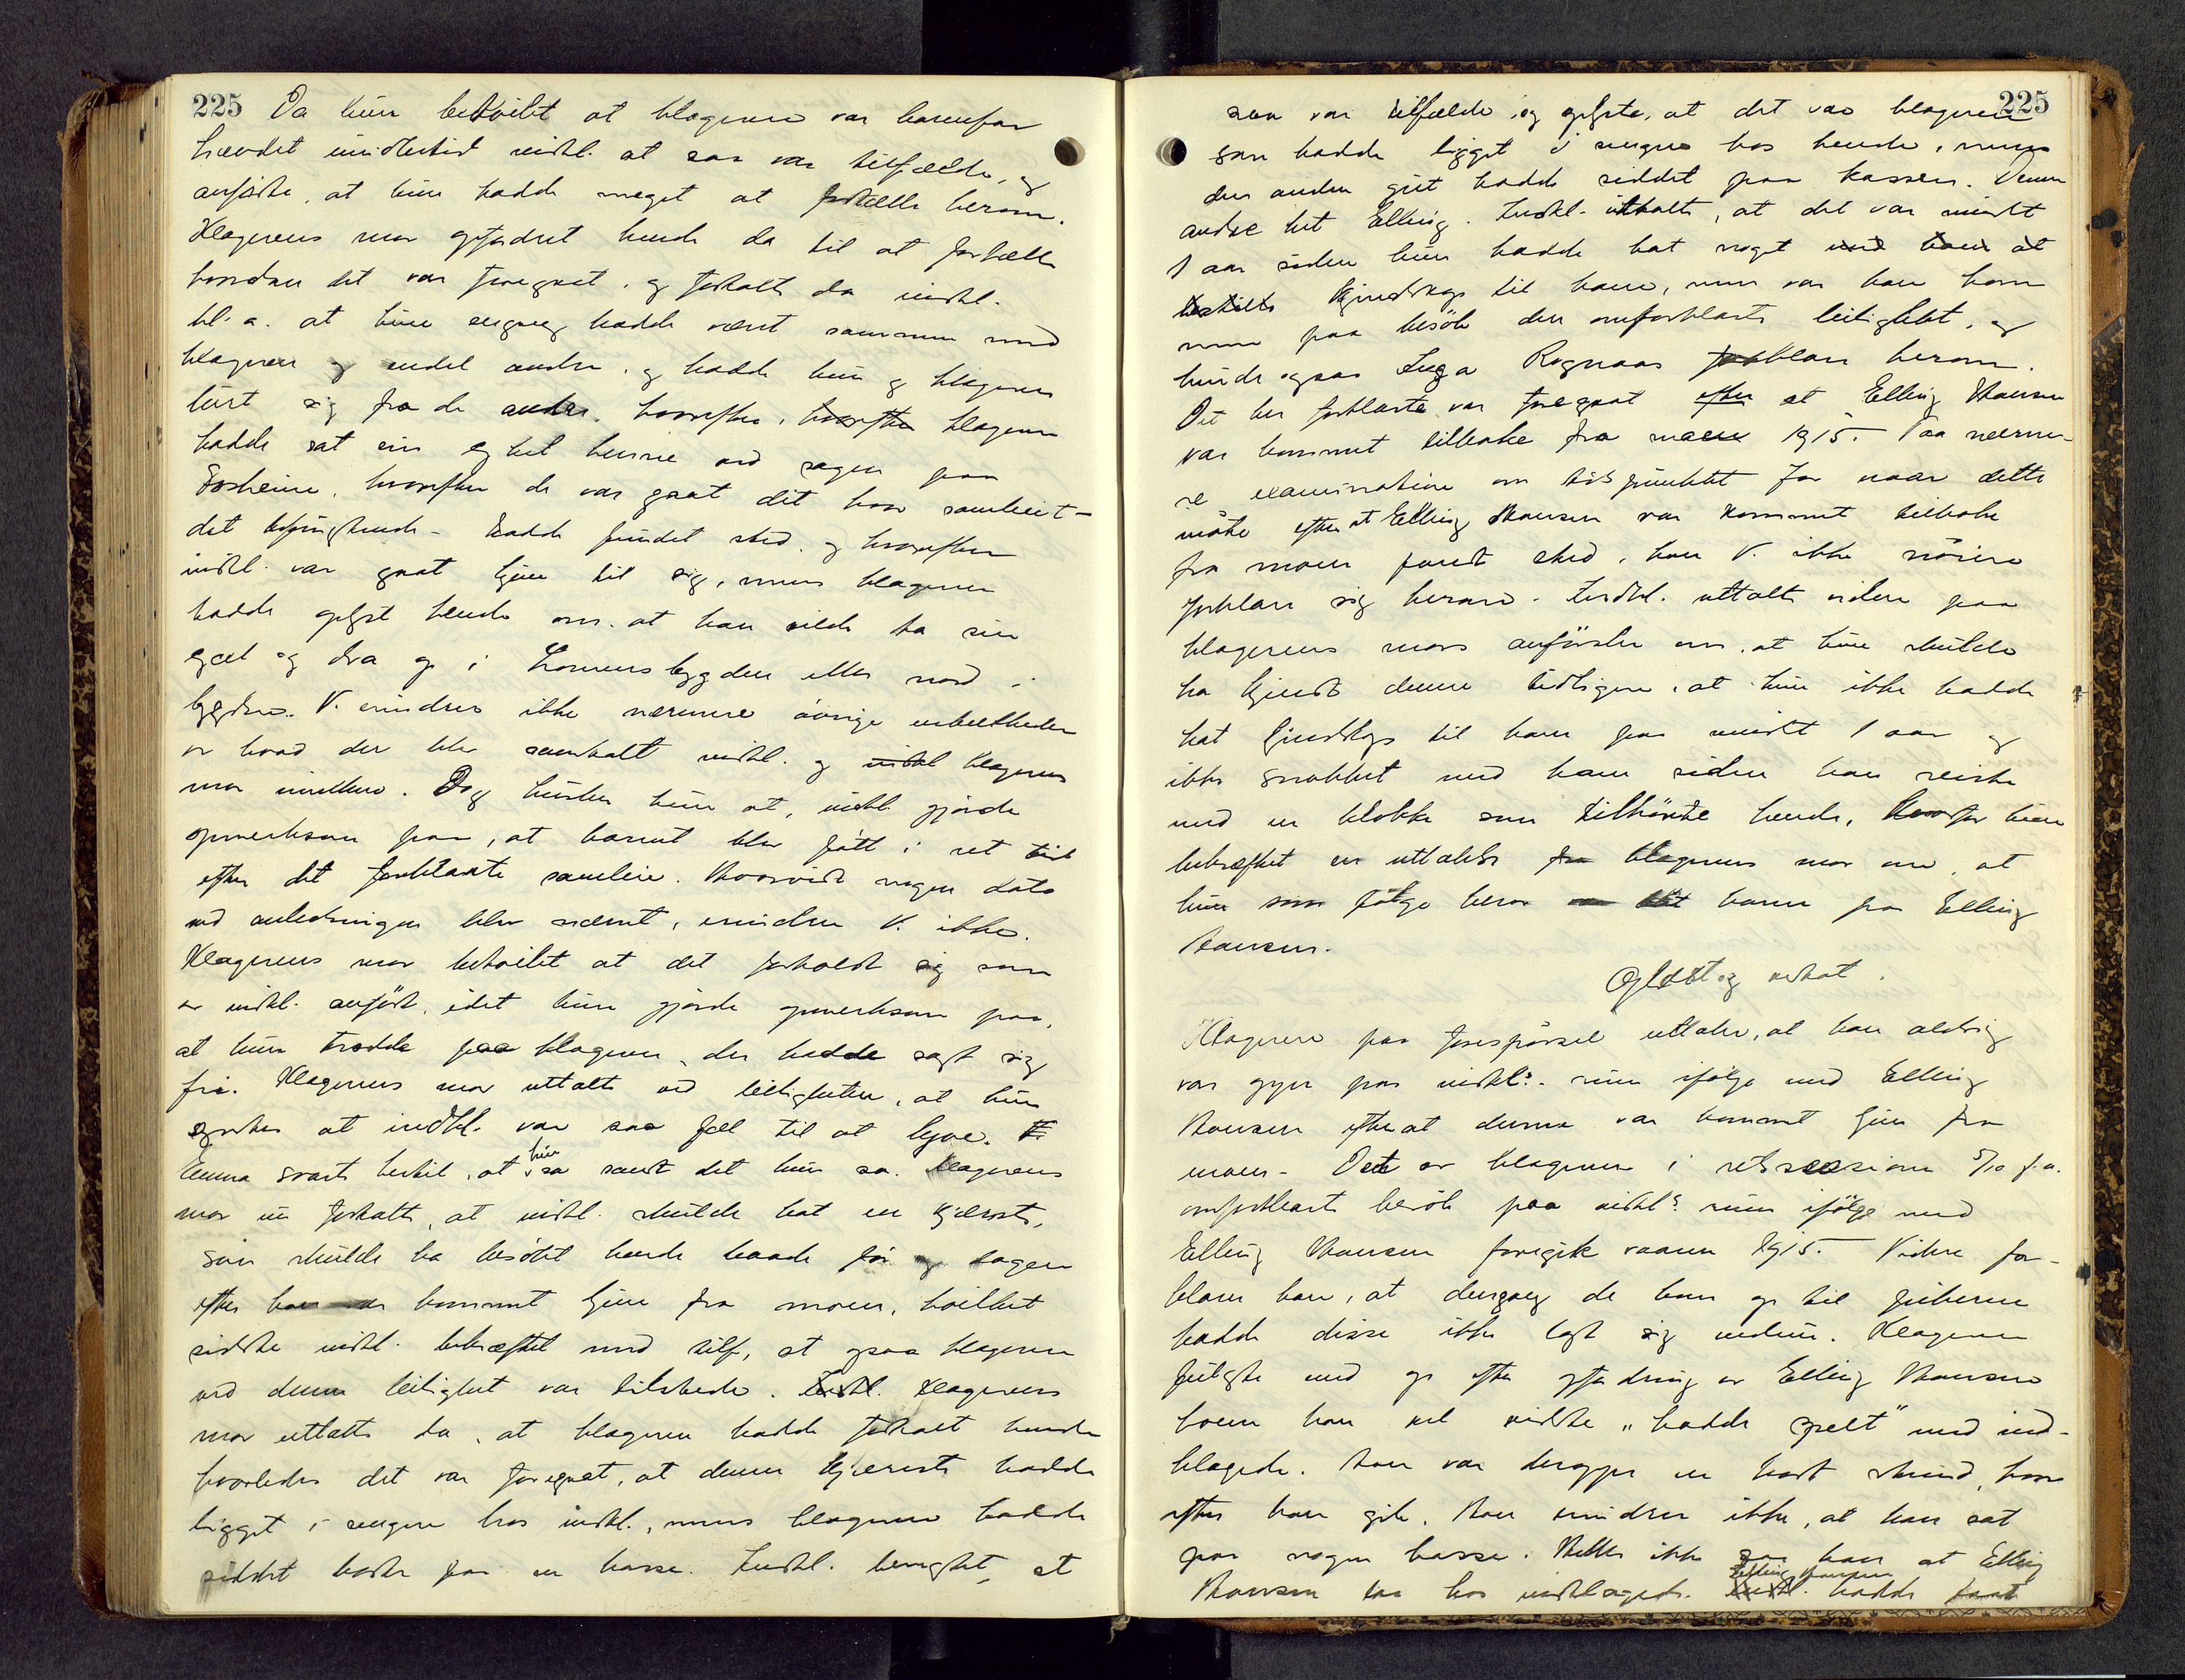 225 Da hun betvilet at klageren var barnefar
hævdet imidlertid indkl. at saa var tilfælde, og
anførte, at hun hadde meget at fortælle herom.
Klagerens mor opfordret hende da til at fortælle
hvordan det var foregaat, og fortalte da indkl.
bl. a. at hun engang hadde været sammen med
klageren og endel andre, og hadde hun og klageren
lurt sig fra de andre, hvorefter, hvorefter klageren
hadde sat sin cykel henne ved vegen paa
Fosheim, hvorefter de var gaat dit hvor samleiet –
det besvangrende – hadde fundet sted, og hvorefter
indkl. var gaat hjem til sig, mens klageren
hadde oplyst hende om, at han vilde ta sin
cycel og dra op i Lomensbygden eller nord i
bygden. V. erindrer ikke nærmere øvrige enkeltheder
av hvad der blev samtalt indkl. og indkl klagerens
mor imellem. Dog husker hun at, indkl. gjorde
opmerksom paa, at barnet blev født i ret tid
efter det forklarte samleie. Hvorvidt nogen dato
ved anledningen blev nævnt, erindrer V. ikke.
Klagerens mor betvilet at det forholdt sig som
av indkl. anført, idet hun gjorde opmerksom paa,
at hun trodde paa klageren, der hadde sagt sig
fri. Klagerens mor uttalte ved leiligheten, at hun
syntes at indkl. var saa fæl til at lyve. E
Emma svarte hertil, at hun sa sandt det hun sa. Klagerens
mor nu fortalte, at indkl. skulde hat en kjæreste,
som skulde ha besøkt hende baade før og dagen
efter han var kommet hjem fra moen, hvilket
sidste indkl. bekræftet med tilf, at ogsaa klageren
ved denne leilighet var tilstede. Indkl. Klagerens
mor uttalte da, at klageren hadde fortalt hende
hvorledes det var foregaat, at denne kjæreste hadde
ligget i sengen hos indkl., mens klageren hadde
siddet borte paa en kasse. Indkl. benegtet, at
225
saa var tilfælde, og oplyste, at det var klageren
som hadde ligget i sengen hos hende, mens
den anden gut hadde siddet paa kassen. Denne
andre het Elling. Indkl. uttalte, at det var mindst
1 aar siden hun hadde hat noget med ham at
bestille kjendskap til ham, men var han kom
men paa besøk den omforklarte leilighet, og
kunde ogsaa Inga Rognaas forklare herom.
Det her forklarte var foregaat efter at Elling Hansen
var kommet tilbake fra moen 1915. Paa nærme-
re examination om tidspunktet for naar dette
møte efter at Elling Hansen var kommet tilbake
fra moen fandt sted, kan V. ikke nøiere
forklare sig herom. Indkl. uttalte videre paa
klagerens mors anførsler om, at hun skulde
ha kjendt denne tidligere, at hun ikke hadde
hat kjendskap til ham paa mindst 1 aar og
ikke snakket med ham siden han reiste
med en klokke som tilhørte hende, hvorfor hun
bekræftet en uttalelse fra klagerens mor om, at
hun som følge herav var blit harm paa Elling
Hansen.
Oplæst og vedtat.
Klageren paa forespørsel uttaler, at han aldrig
var oppe paa indkl:s rum ifølge med Elling
Hansen efterat denne var kommet hjem fra
moen. Det av klageren i retssessionen 5/10 f.a.
omforklarte besøk paa indkl:s rum ifølge med
Elling Hansen foregik vaaren 1915. Videre for-
klarer han, at dengang de kom op til pikerne
hadde disse ikke lagt sig endnu. Klageren
fulgte med op efter opfordring av Elling Hansen
hvem han vel vidste „hadde spelt" med ind-
klagede. Han var deroppe en kort stund, hvor
efter han gik. Han erindrer ikke, at han sat
paa nogen kasse. Heller ikke saa han at Elling
Hansen laa hos indklagede. Indkl. Elling Hansen hadde